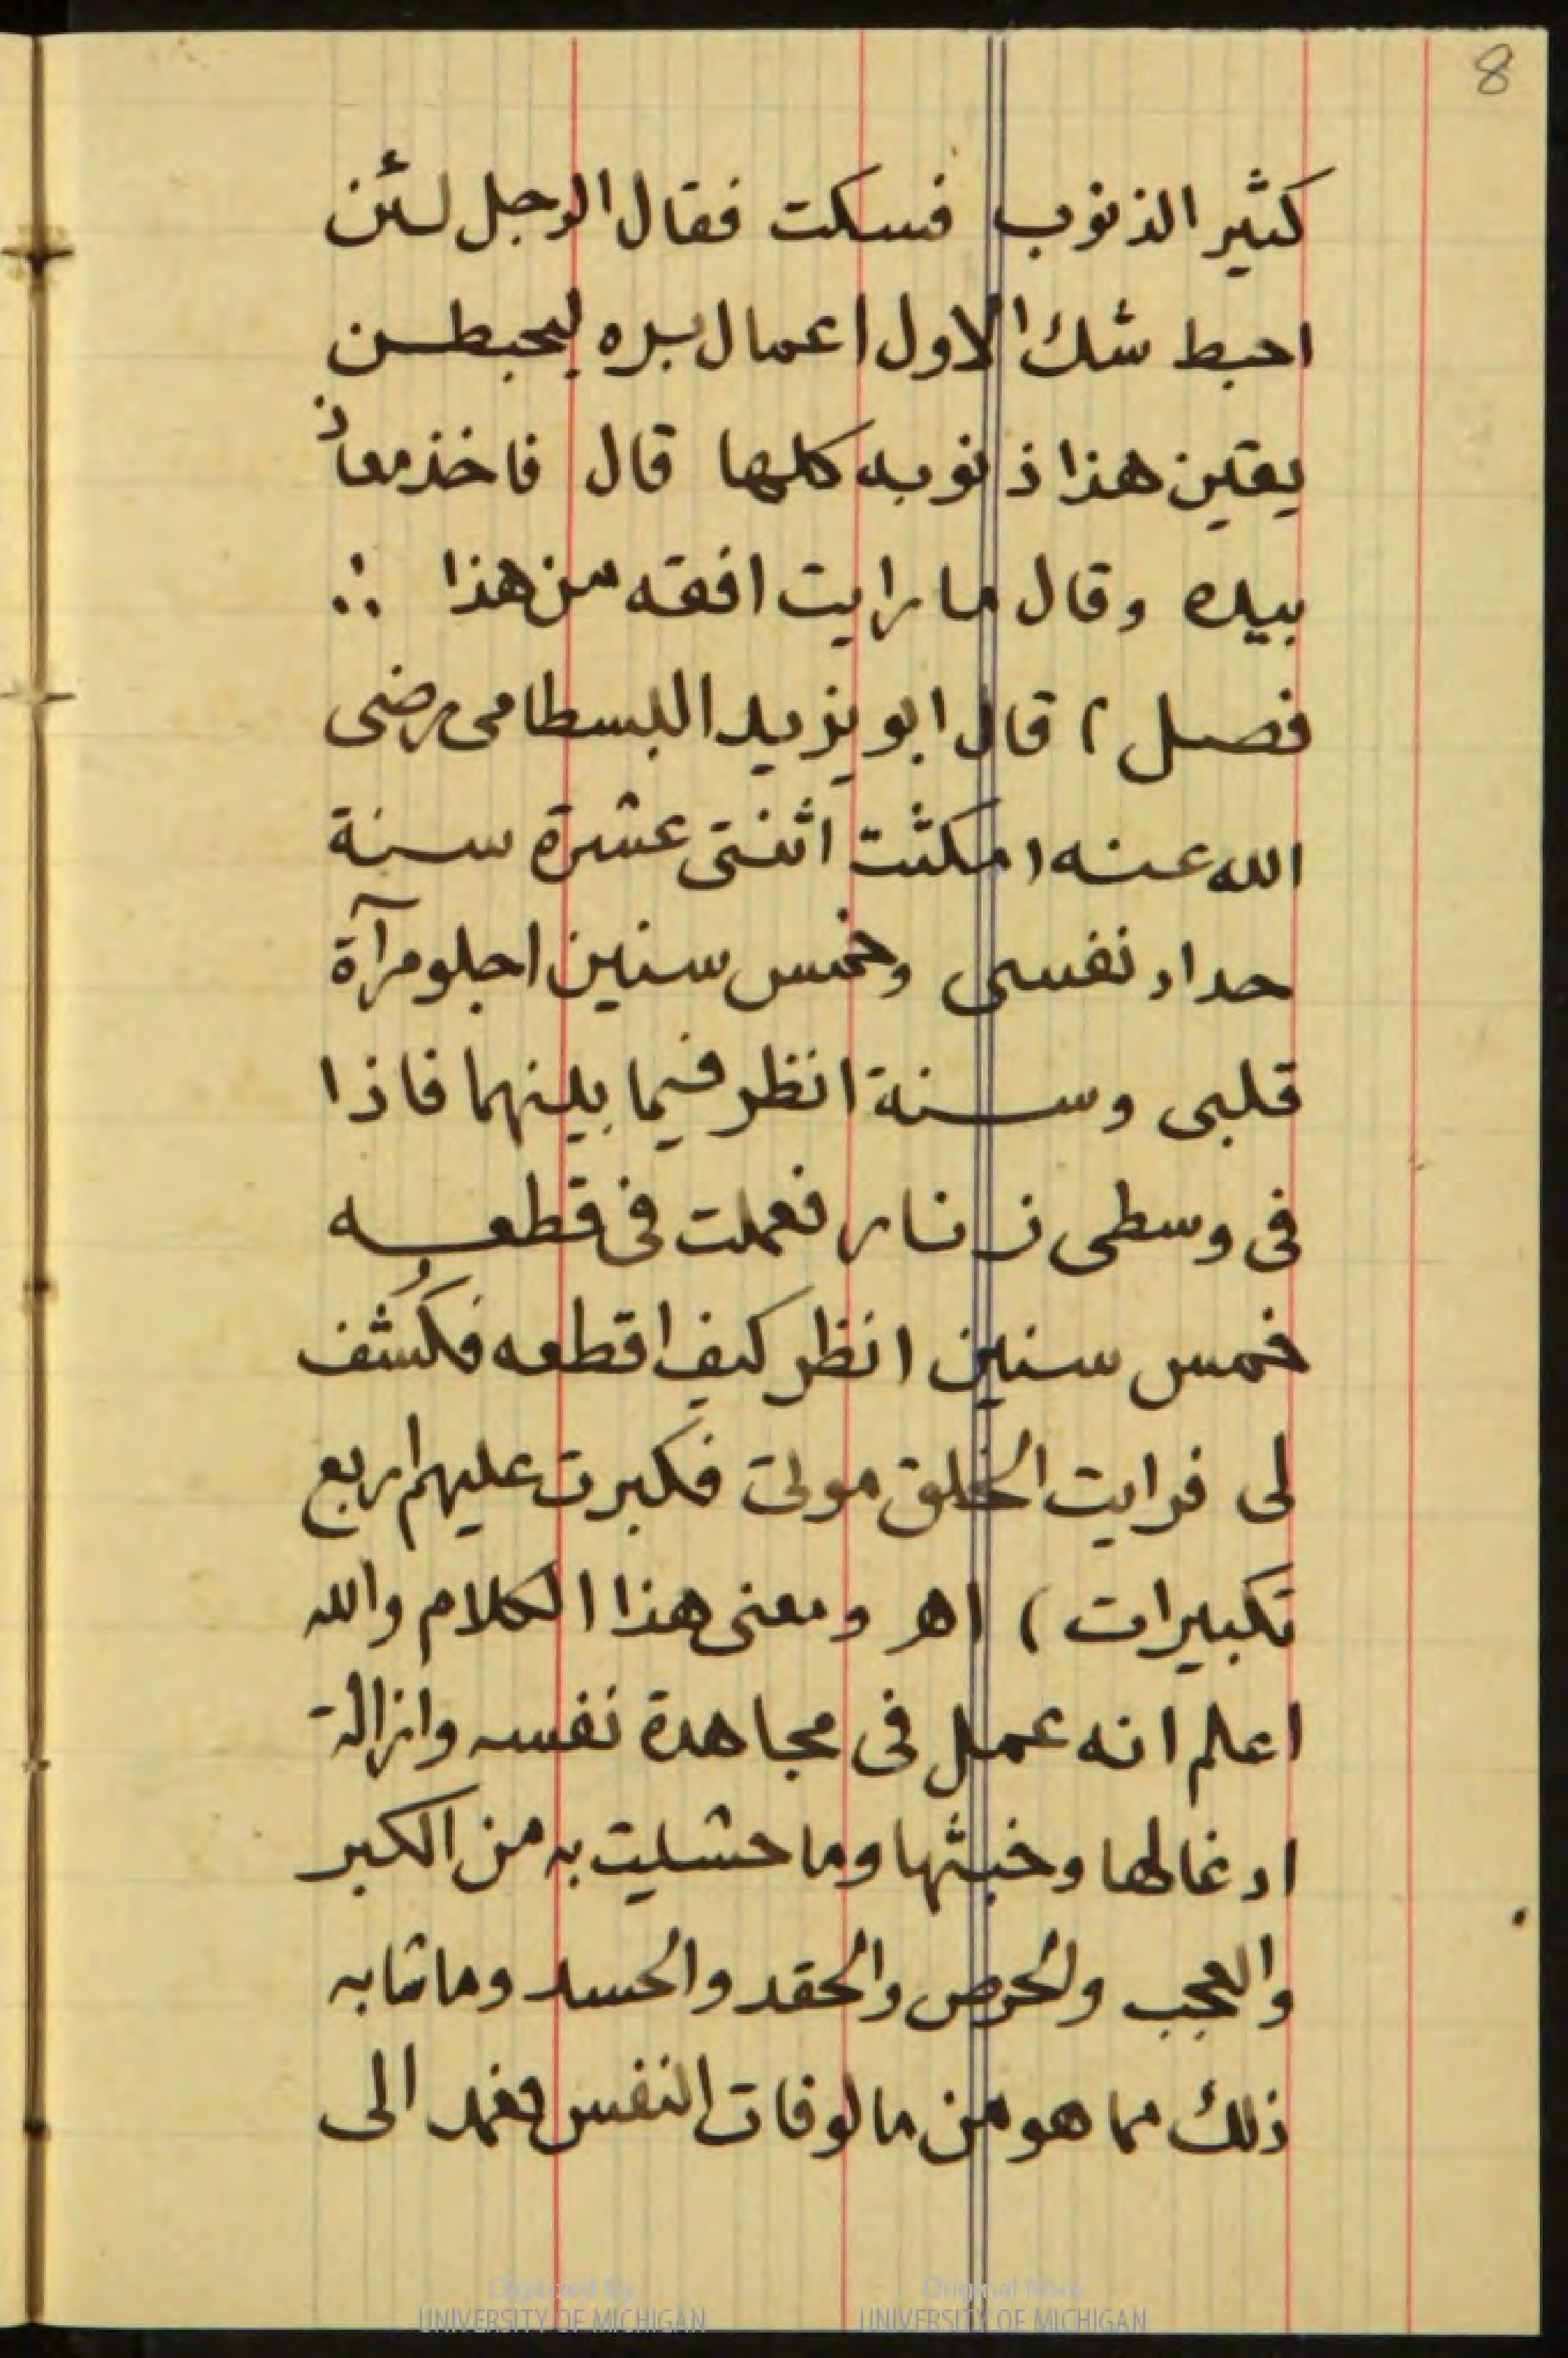 8
كثير الذنوب فسكت فقال الرجل لئن
احبط شك الاول اعمال بره ليحبطن
يقين هذا ذنوبه كلها قال فاخذ معاذ
بيده وقال ما رايت افقه من هذا ∴
فصل ) قال ابو يزيد البسطامى رضى
الله عنه ( مكثت اثنتى عشرة سنة
حداد نفسى وخمس سنين اجلو مرآة
قلبى وسنة انظر فيما بينهما فاذا
فى وسطى زنار فعملت فى قطعه
خمس سنين انظر كيف اقطعه فكُشف
لى فرايت الخلق موتى فكبرت عليهم اربع
تكبيرات ) اهـ ومعنى هذا الكلام والله
اعلم انه عمل فى مجاهدة نفسه وازالة
ادغالها وخبثها وما حشيت به من الكبر
والعجب والحرص والحقد والحسد وما شابه
ذلك مما هو من مالوفات النفس فعمد الى
Digitized by
UNIVERSITY OF MICHIGAN
Original from
UNIVERSITY OF MICHIGAN